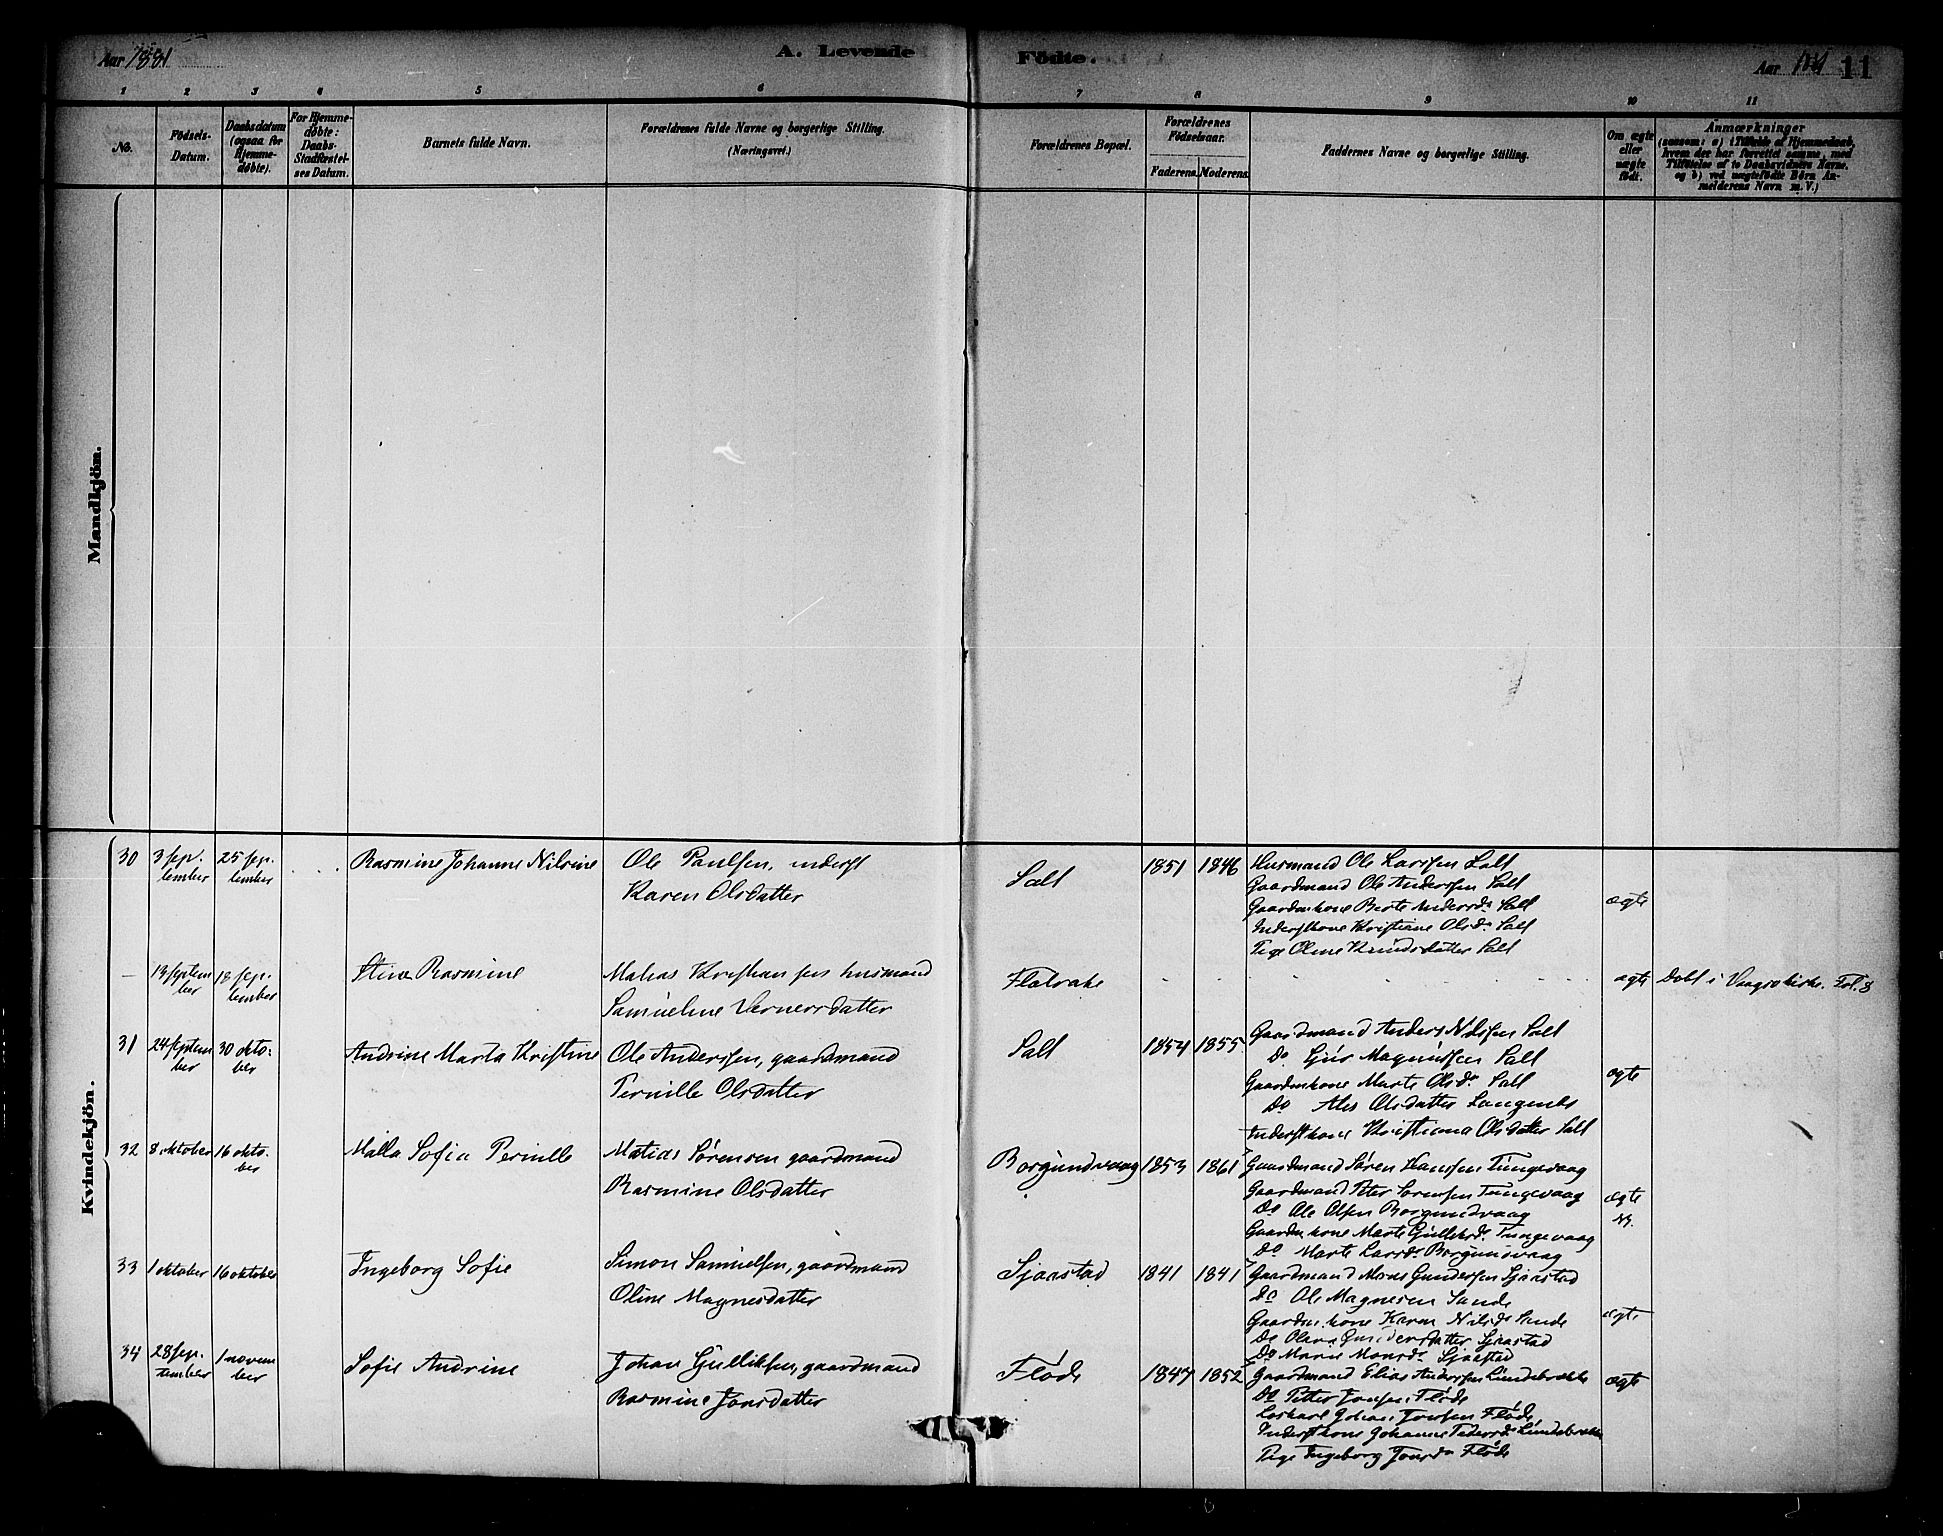 Aar 1881
A. Levende Födte.
Aar 11
1 2 3 4 5 6 7 8 9 10 11
No.
Födsels-Datum.
Daabsdatum (ogsaa for Hjemme-døbte).
For Hjemme-døbte: Daabs-Stadfæstel-ses Datum.
Barnets fulde Navn.
Forældrenes fulde Navne og borgerlige Stilling.
(Næringsvei.)
Forældrenes Bopæl.
Forældrenes Födselsaar.
Faderens. Moderens.
Faddernes Navne og borgerlige Stilling.
Om ægte eller uægte født.
Anmærkninger
(saasom: a) i Tilfælde af Hjemmedaab,
hvem der har forrettet samme, med
Tilføielse af to Daabsvidners Navne,
og b) ved uægtefødte Börn An-
melderens Navn m. V.)
Mandkjön.
Kvindekjön.
30 3 sep-tember 25 sep-tember Rasmine Johanne Nilsine Ole Paulsen, inderst
Karen Olsdatter
Salt 1851 1846 Husmand Ole Larssen Salt
Gaardmand Ole Anderssen Salt
Gaardmkone Berte Andersda Salt
Inderstkone Kristiane Olsda Salt
Pige Oline Knudsdatter Salt
ægte
— 13 septem-ber 18 sep-tember Stine Rasmine Matias Kristiansen husmand
Samueline Vernersdatter
Flatrake ægte Døbt i Vaagsø kirke. Fol. 8
31 24 septem-ber 30 okto-ber Andrine Marta Kristine Ole Anderssen, gaardmand
Pernille Olsdatter
Salt 1854 1855 Gaardmand Anders Nilssen Salt
Do Sjur Magnussen Salt
Gaardmkone Marte Olsda Salt
Do Ales Olsdatter
Inderstkone Kristiana Olsdatter Salt
ægte
32 8 oktober 16 okto-ber Malla Sofia Pernille Matias Sørensen gaardmand
Rasmine Olsdatter
Borgundvaag 1853 1861 Gaardmand Søren Hanssen Tungevaag
Gaardmand Peter Sørensen Tungevaag
Do Ole Olsen Borgundvaag
Gaardmkone Marte Gulliksda Tungevaag
Do Marte Larsda Borgundvaag
ægte
33 1 oktober 16 oktober Ingeborg Sofie Simon Samuelsen, gaardmand
Oline Magnesdatter
Sjaastad 1841 1841 Gaardmand Mons Gunderssen Sjaastad
Do Ole Magnesen Sande
Gaardmkone Karen Nilsda Sande
Do Olava Gundersdatter Sjaastad
Do Marie Monsda Sjaastad
ægte
34 28 sep-tember 1 novem-ber Sofie Andrine Johan Gulliksen, gaardmand
Rasmine Jonsdatter
Fløde 1847 1852 Gaardmand Elias Anderssen Lundebrække
Do Petter Jonsen Fløde
Løskarl Johan Jonsen Fløde
Inderstkone Johanne Pedersda Lundebrække
Pige Ingeborg Jonsda Fløde
ægte